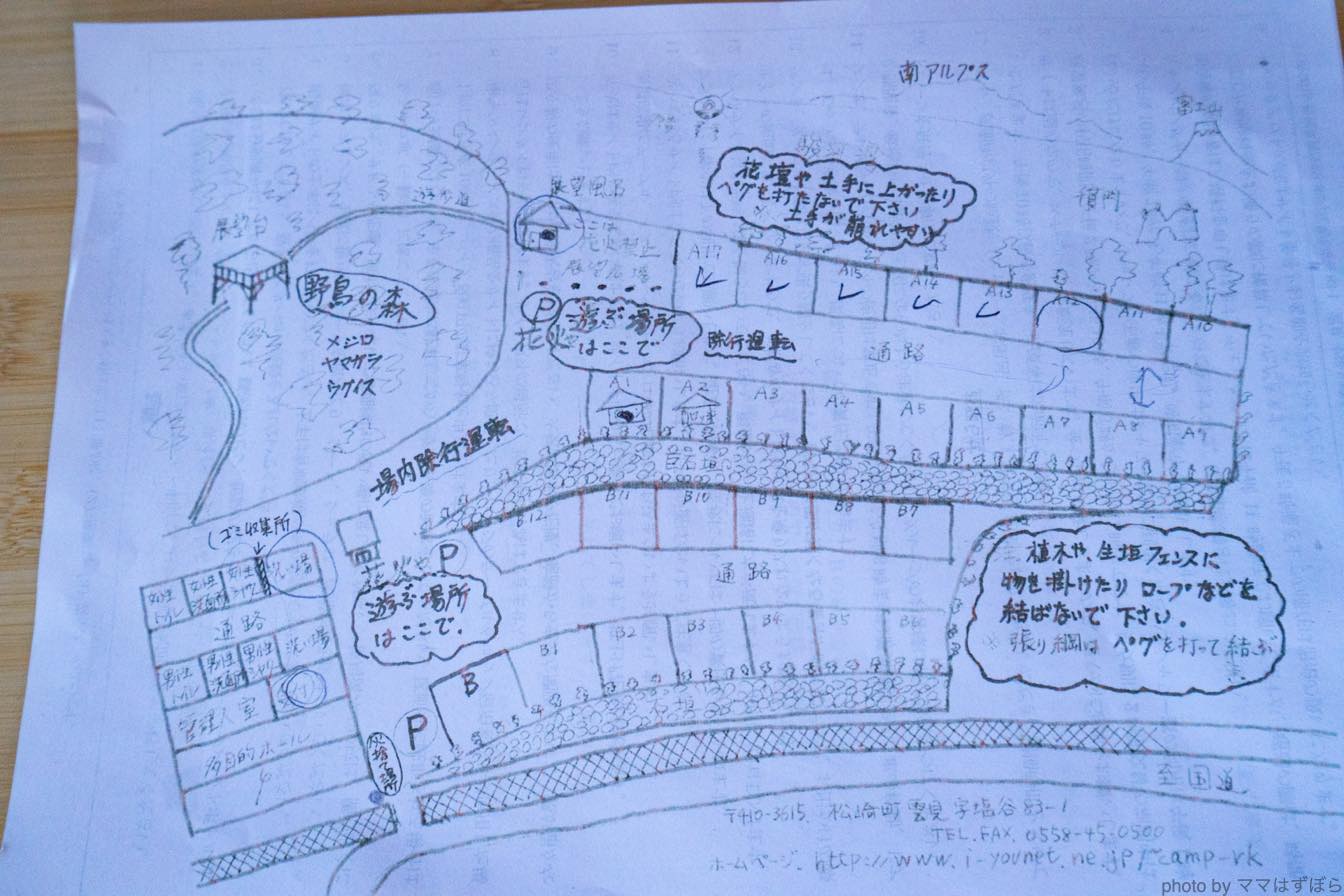 南アルプス
富士山
花壇や土手に上がったり
ペグを打たないで下さい
土手が崩れやすい
遊歩道
展望台
野鳥の森
メジロ
ヤマガラ
ウグイス
P
花火
遊ぶ場所
はここで
除行運転
通路
A17
A16
A15
A14
A13
A12
A11
A10
A1
A2
A3
A4
A5
A6
A7
A8
A9
場内除行運転
B12
B11
B10
B9
B8
B7
通路
P
遊ぶ場所
はここで.
植木や、生垣フェンスに
物を掛けたり ロープなどを
結ばないで下さい.
※張り綱は ペグを打って結ぶ
(ゴミ収集所)
女性
トイレ
女性
洗面所
女性
洗い場
通路
男性
トイレ
男性
洗面所
男性
洗い場
管理人室
多目的ホール
B
B1
B2
B3
B4
B5
B6
石垣
P
火捨て場
至国道
〒410-3615 松崎町雲見字塩谷83-1
TEL.FAX. 0558-45-0500
ホームページ. http://www.i-younet.ne.jp/~camp-vk
photo by ママはずぼら